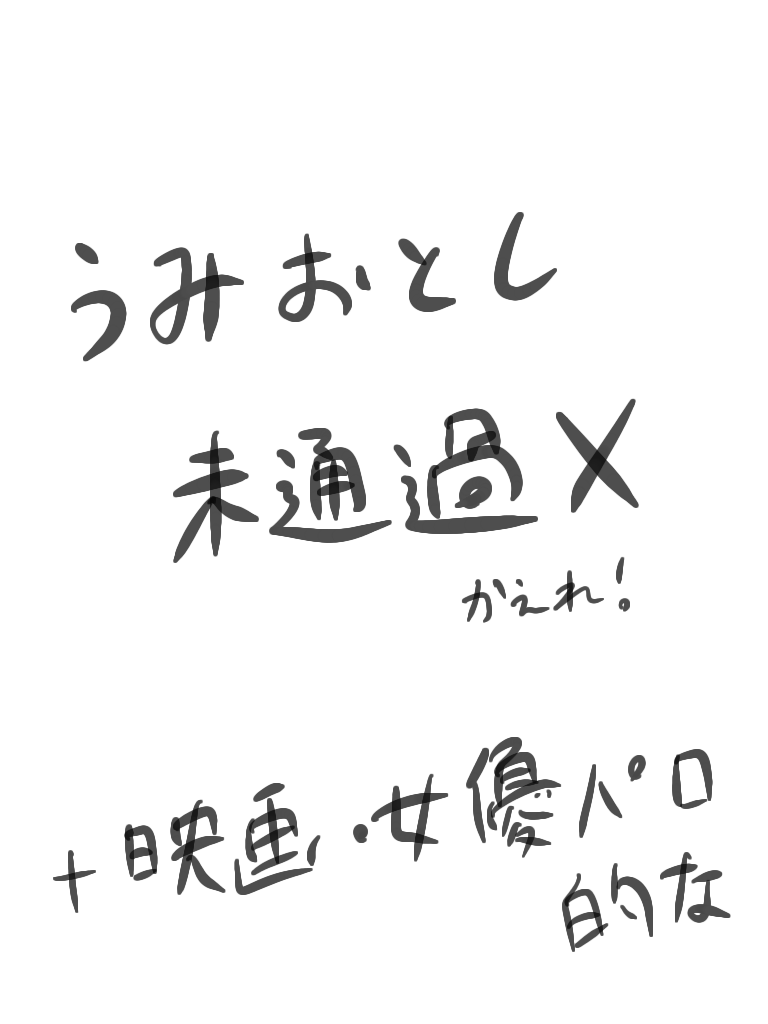 うみおとし
未通過×
かえれ!
+映画・女優パロ
的な